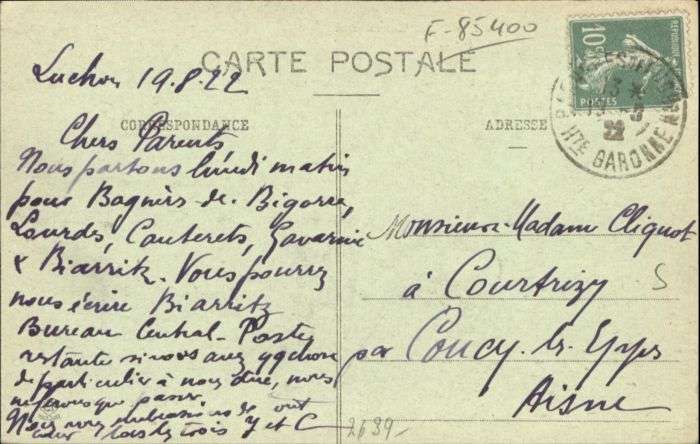 F-85400
CARTE POSTALE
10c
RÉPUBLIQUE
POSTES
HTE GARONNE
22
Luchon 19.8.22
CORRESPONDANCE
ADRESSE
Chers Parents
Nous partons lundi matin
pour Bagnèrs-de-Bigorre,
Lourdes, Cauterets, Gavarnie
& Biarritz. Vous pourrez
nous écrire Biarritz
Bureau Central-Poste
restante si vous avez qq chose
de particulier à nous dire, nous
ne ferons que passer.
Nous vous embrassons de tout
cœur tous les trois Y et C
Monsieur-Madam Cliquot
à Courtrizy
par Coucy-les-Eppes
Aisne
S
2639-